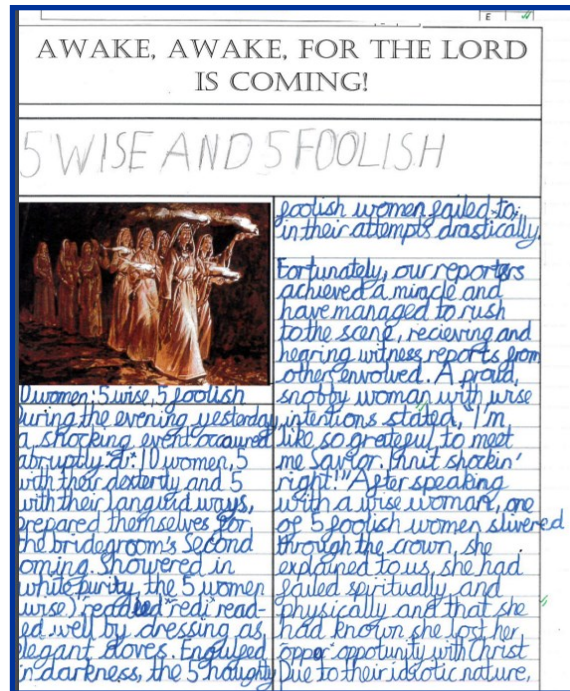 E
AWAKE, AWAKE, FOR THE LORD
IS COMING!
5 WISE AND 5 FOOLISH
10 women: 5 wise, 5 foolish
During the evening yesterday,
a shocking event occaured
abruptly. 10 women, 5
with their dexterity and 5
with their languid ways,
prepared themselves for
the bridegroom's Second
Coming. Showered in
white purity, the 5 women
(wise) readied read-
ed well by dressing as
elegant doves. Engulfed
in darkness, the 5 haughty
foolish women failed to
in their attempts drastically.
Fortunately, our reporters
achieved a miracle and
have managed to rush
to the scene, recieving and
hearing witness reports from
other envolved. A proud,
snobby woman with wise
intentions stated, "I'm
like so grateful to meet
me Savior. Innit shockin'
right!" After speaking
with a wise woman, one
of 5 foolish women slivered
through the crown, she
explained to us, she had
failed spiritually and
physically and that she
had known she lost her
oppor oppotunity with Christ
Due to their idiotic nature,